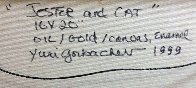 "Jester and CAT"
16x20"
OIL/Gold/canvas, Enamel
Yuri Gorbachev 1999